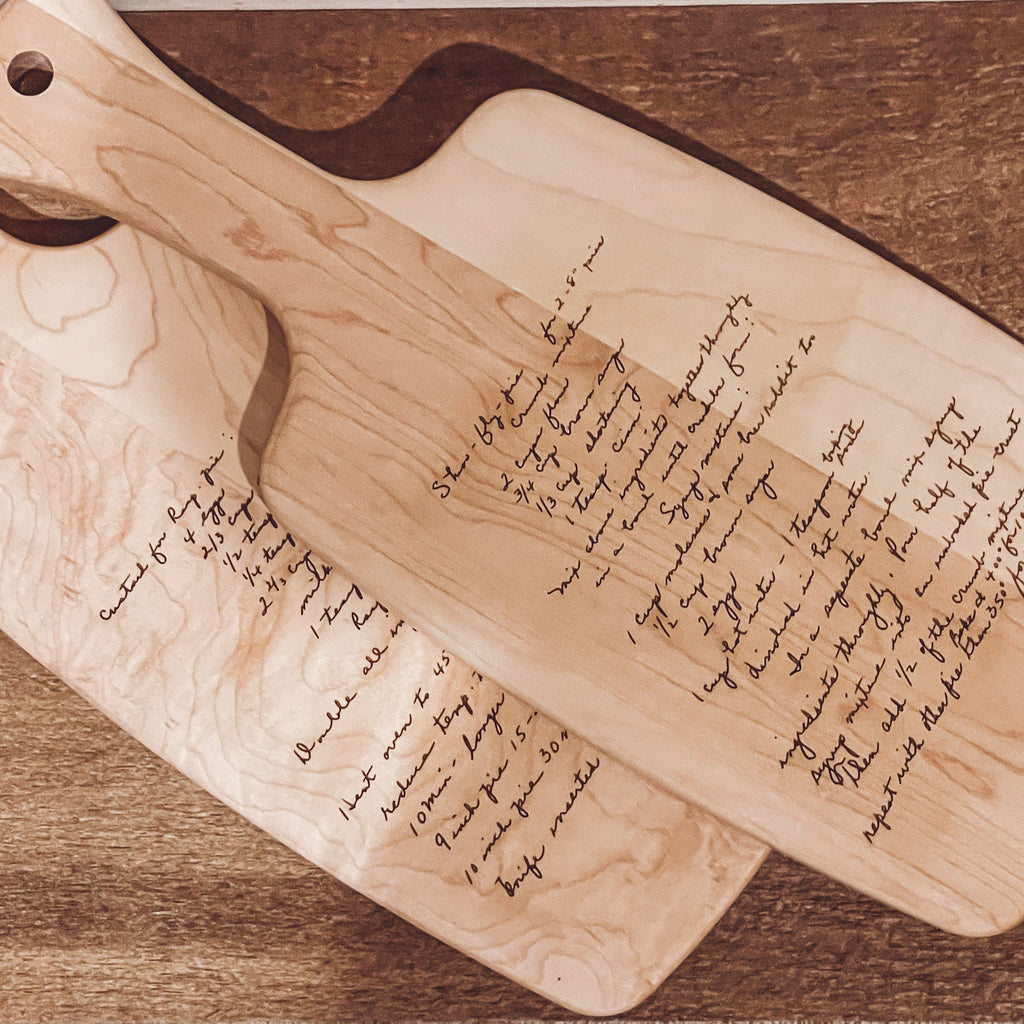 Shoo-fly-pie for 2-8" pies
Crumb mixture
2 cups flour
3/4 cup brown sugar
1/3 cup shortening
1 teasp. cinn.
mix above ingredients together thoroughly
in a bowl until crumbs form
Syrup mixture:
1 cup molasses & some hev rabbit to
1/2 cup brown sugar
2 eggs
1 cup hot water - 1 teaspoon baking soda
dissolved in hot water.
In a separate bowl mix syrup
ingredients thoroughly. Pour half of the
syrup mixture into an unbaked pie crust
Then add 1/2 of the crumb mixture
Bake at 400° for
repeat with other pie then 350° for
Custard for Reg. pie:
4 eggs
2/3 cup
1/2 teasp
1/4 teasp
2 2/3 cup
milk
1 teasp
Reg
Double all in
Heat oven to 45
reduce temp.
10 min - longer
9 inch pie 15-
10 inch pie 30 m
knife inserted